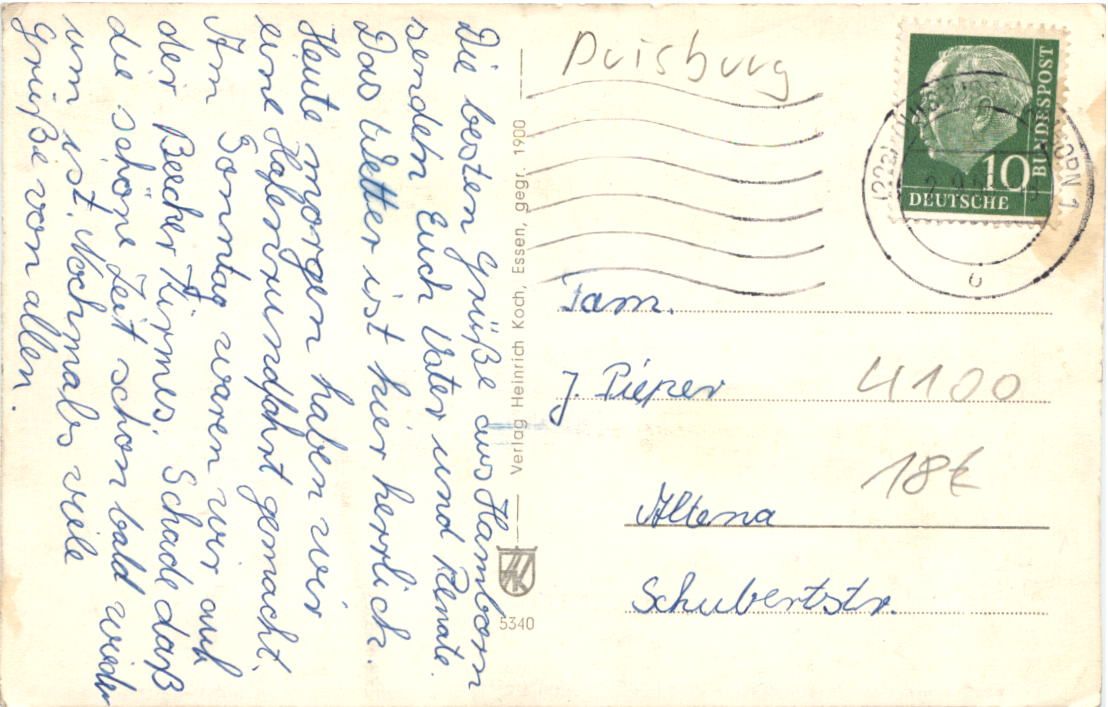 Die besten Grüße aus Hamborn
senden Euch Vater und Renate.
Das Wetter ist hier herrlich.
Heute morgen haben wir
eine Hafenrundfahrt gemacht.
Am Sonntag waren wir auf
der Beecker Kirmes. Schade daß
die schöne Zeit schon bald wieder
um ist. Nochmals viele
Grüße von allen.
Verlag Heinrich Koch, Essen, gegr. 1900
5340
Duisburg
10
BUNDESPOST
DEUTSCHE
Fam.
J. Pieper
4100
18€
Altena
Schubertstr.